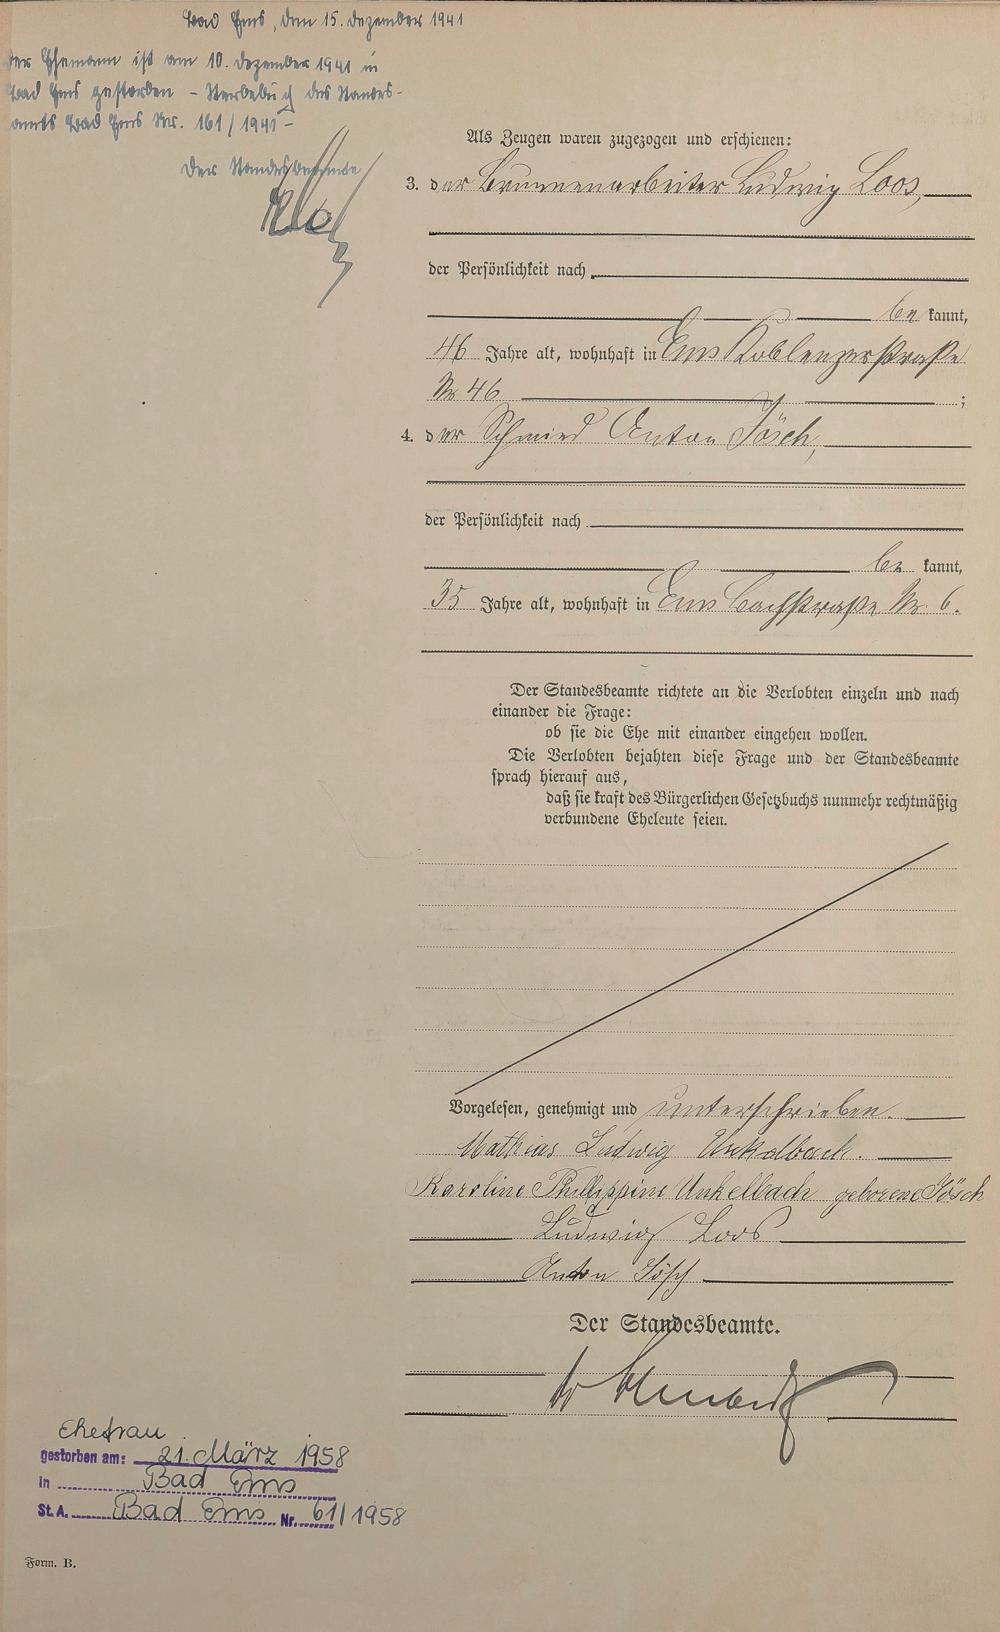 Bad Ems, den 15. Dezember 1941
Der Ehemann ist am 10. Dezember 1941 in
Bad Ems gestorben – Sterbebuch des Standes-
amts Bad Ems Nr. 161/1941 –
Der Standesbeamte
Als Zeugen waren zugezogen und erschienen:
3. der Brunnenarbeiter Ludwig Loos,
der Persönlichkeit nach
be kannt,
46 Jahre alt, wohnhaft in Ems Koblenzerstraße
Nr. 46 ;
4. der Schmied Anton Jösch,
der Persönlichkeit nach
be kannt,
35 Jahre alt, wohnhaft in Ems Bachstraße Nr. 6.
Der Standesbeamte richtete an die Verlobten einzeln und nach
einander die Frage:
ob sie die Ehe mit einander eingehen wollen.
Die Verlobten bejahten diese Frage und der Standesbeamte
sprach hierauf aus,
daß sie kraft des Bürgerlichen Gesetzbuchs nunmehr rechtmäßig
verbundene Eheleute seien.
Vorgelesen, genehmigt und unterschrieben.
Mathias Ludwig Unkelbach.
Karoline Phillippine Unkelbach geborene Jösch
Ludwig Loos
Anton Jösch
Der Standesbeamte.
Ehefrau
gestorben am: 21. März 1958
in Bad Ems
St. A. Bad Ems Nr. 61/1958
Form. B.